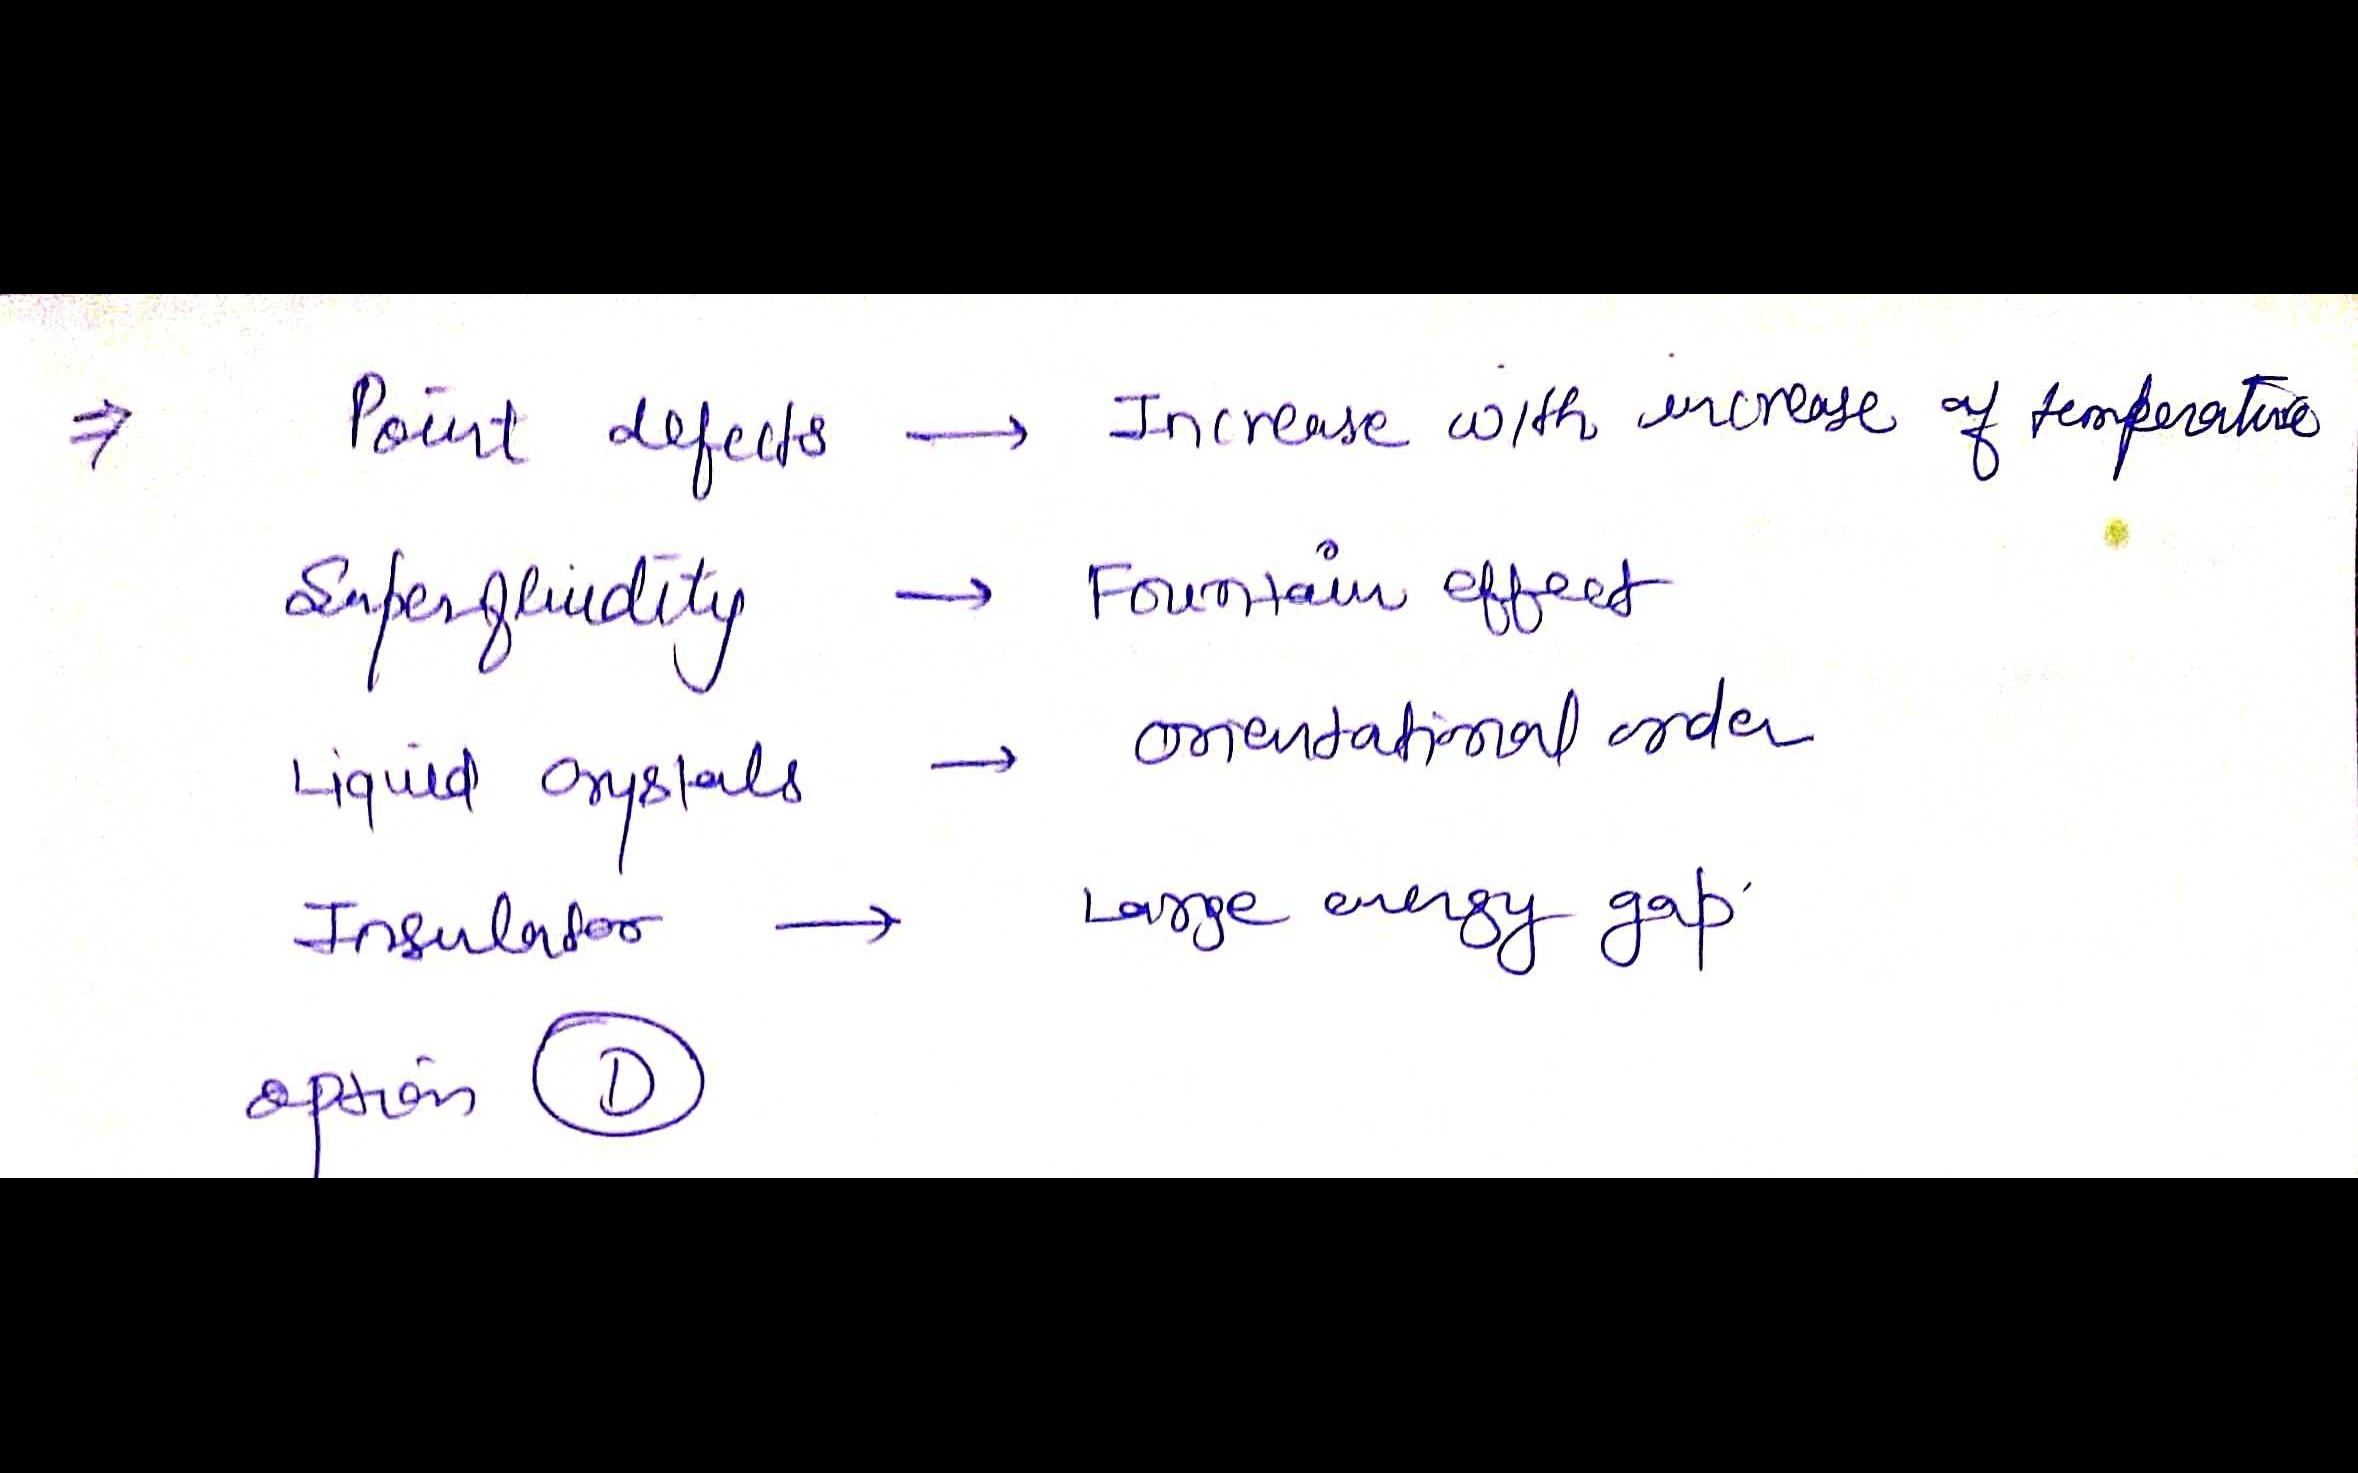 ⇒ Point defects → Increase with increase of temperature
Superfluidity → Fountain effect
Liquid crystals → orientational order
Insulator → Large energy gap
option D